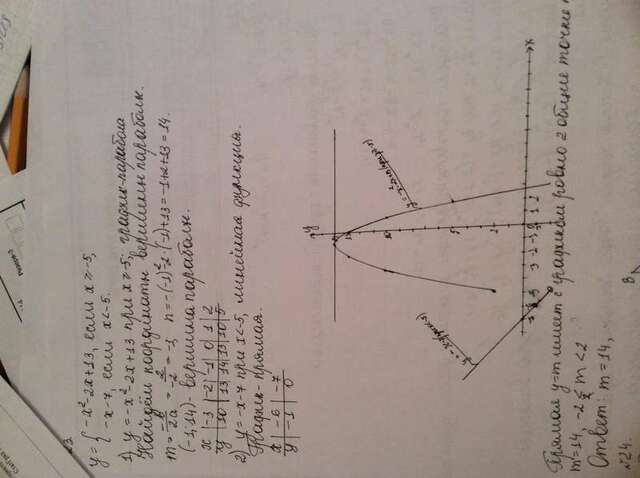 23.
y = { -x² - 2x + 13, если x ≥ -5,
-x - 7, если x < -5.
1) y = -x² - 2x + 13 при x ≥ -5, график-парабола
Найдём координаты вершины параболы.
m = -b/2a = 2/-2 = -1, n = -(-1)² - 2·(-1) + 13 = -1 + 2 + 13 = 14.
(-1; 14) - вершина параболы.
x | -3 | -2 | -1 | 0 | 1 | 2
y | 10 | 13 | 14 | 13 | 10 | 5
2) y = -x - 7 при x < -5, линейная функция.
График - прямая.
x | -6 | -7
y | -1 | 0
y
x
Прямая y = m имеет с графиком ровно 2 общие точки
m = 14, -2 ≤ m < 2
Ответ: m = 14,
№24.